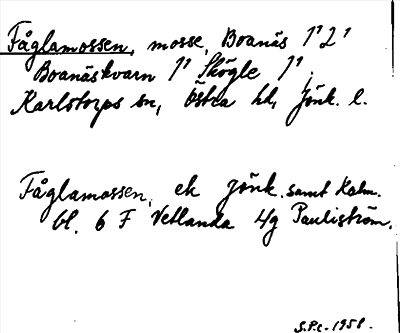 Fåglamossen, mosse, Boanäs 1¹ 2¹
Boanäskvarn 1¹ Skögle 1¹,
Karlstorps sn, Östra hd, Jönk. l.
Fåglamossen, ek Jönk. samt Kalm.
bl. 6 F Vetlanda 4/g Pauliström.
S.P.c. 1958.